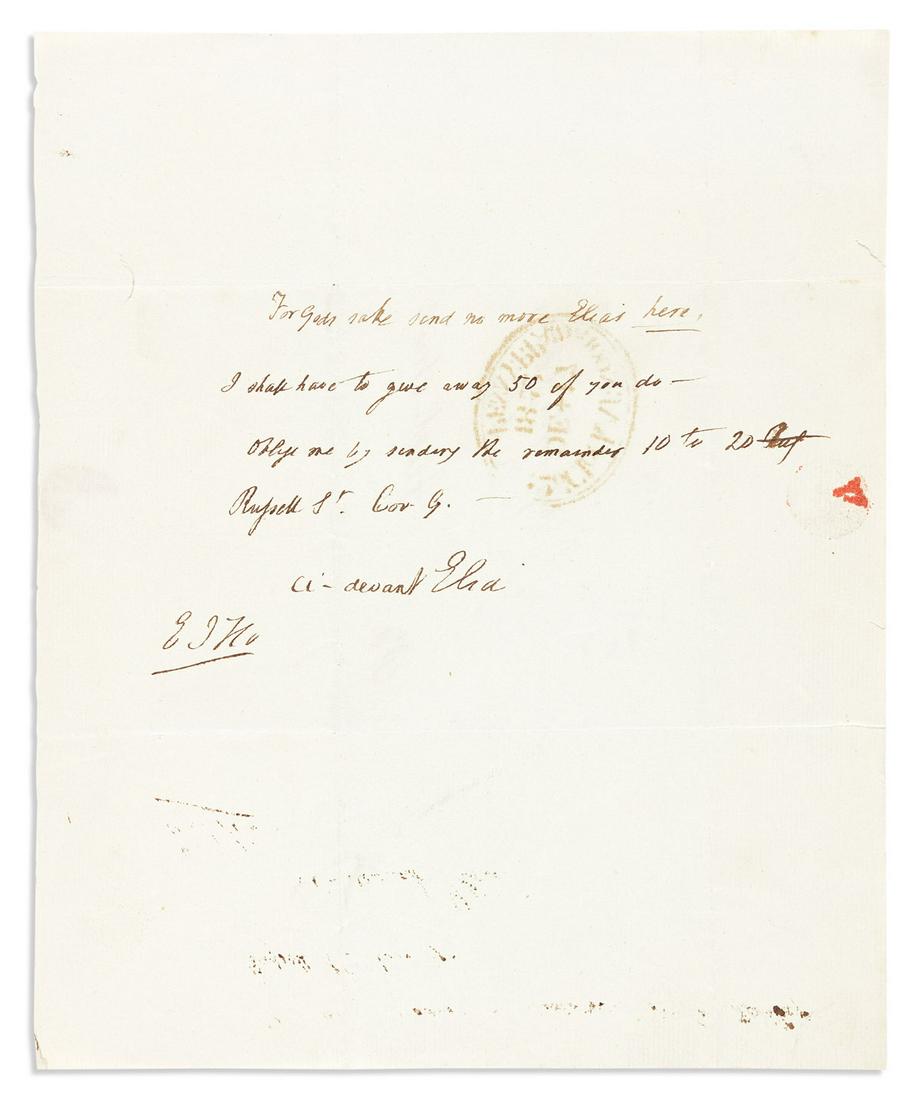 For Gods sake send no more Elias here,
I shall have to give away 50 if you do —
Oblige me by sending the remainder 10 to 20
Russell St. Cov. G. —
ci-devant Elia
E I Ho